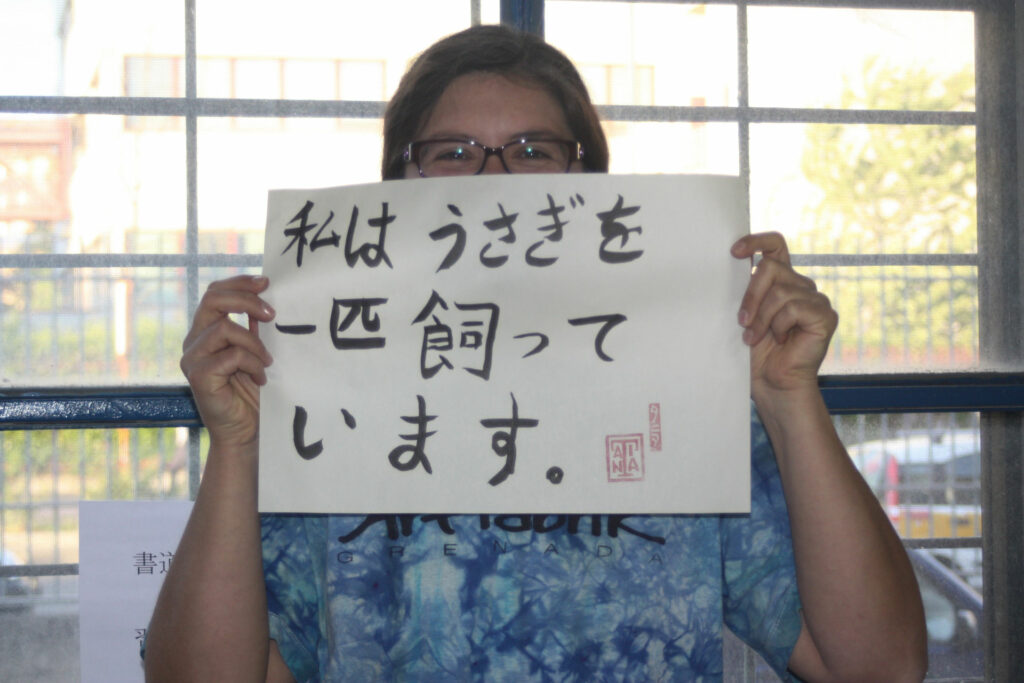 私はうさぎを
一匹飼って
います。
タニア
TANIA
Art Fabrik
GRENADA
書道